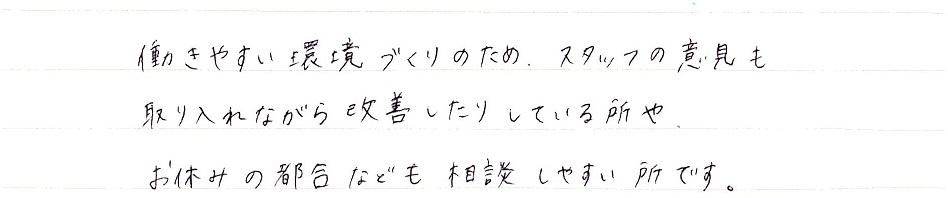 働きやすい環境づくりのため、スタッフの意見も
取り入れながら改善したりしている所や、
お休みの都合なども相談しやすい所です。